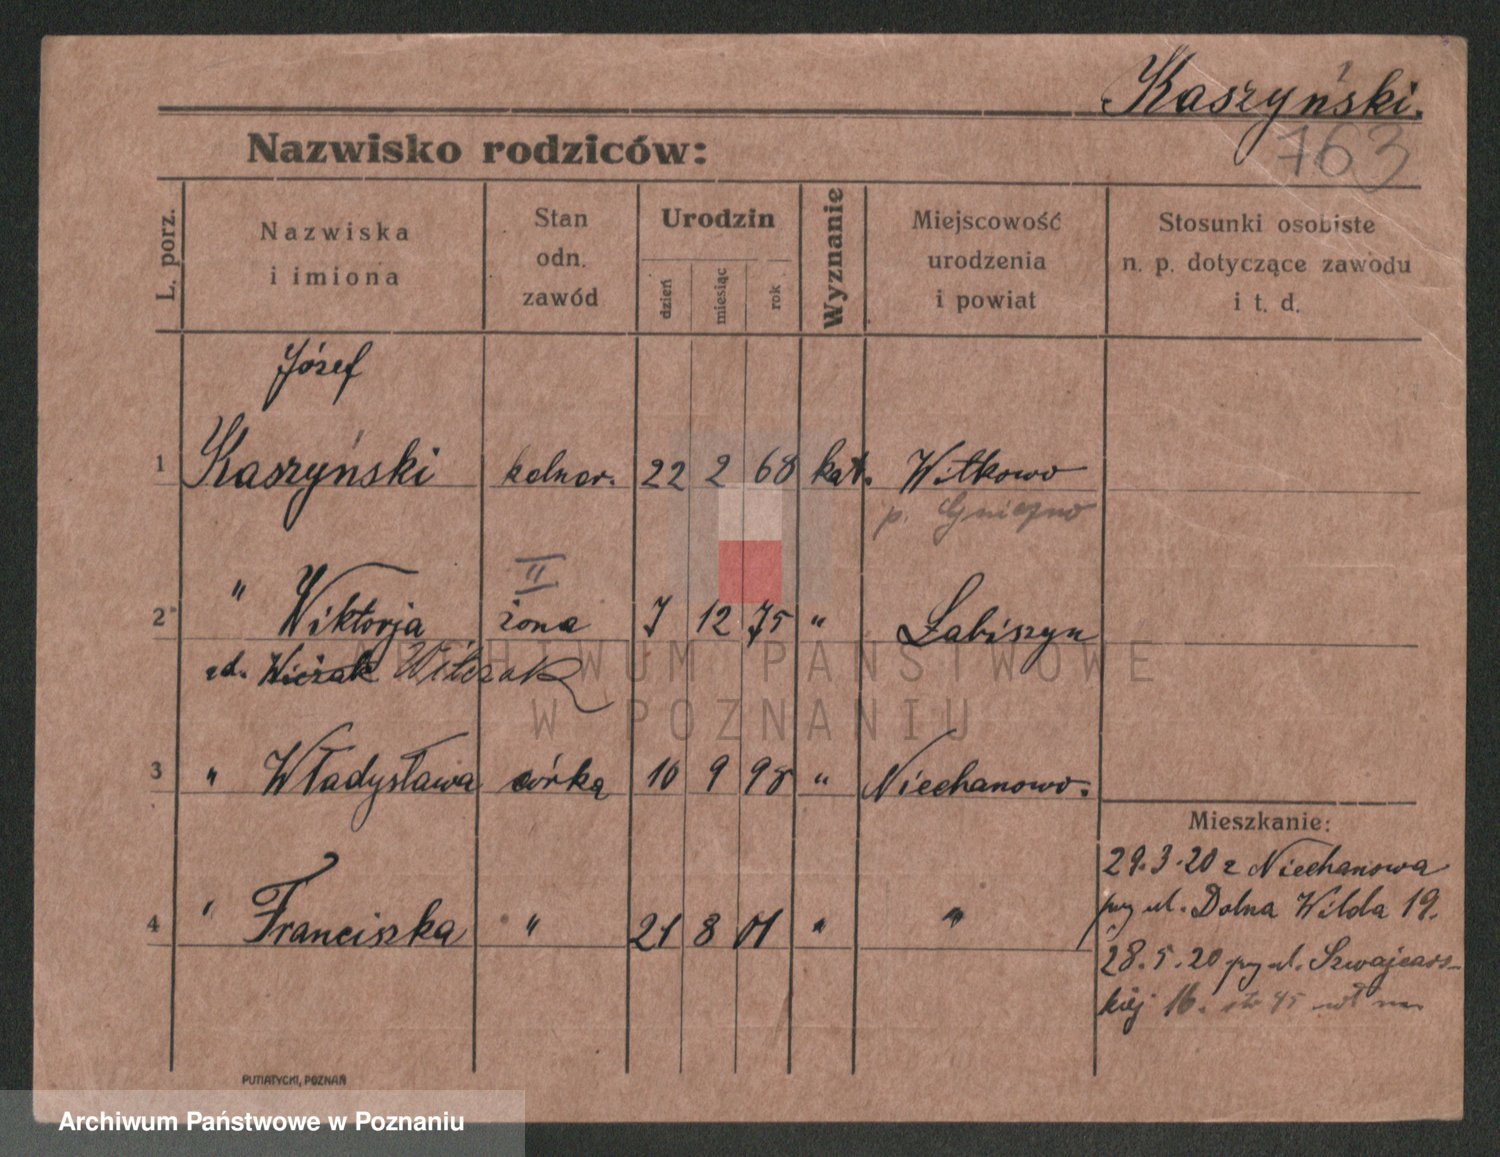 Kaszyński.
763
Nazwisko rodziców:
L. porz.
Nazwiska i imiona
Stan odn. zawód
Urodzin
dzień
miesiąc
rok
Wyznanie
Miejscowość urodzenia i powiat
Stosunki osobiste n. p. dotyczące zawodu i t. d.
Józef
1 Kaszyński kelner. 22 2 68 kat. Witkowo
p. Gniezno
II
2 " Wiktorja żona 7 12 75 " Łabiszyn
zd. Witczak
3 " Władysława córka 10 9 98 " Niechanowo.
4 " Franciszka " 21 8 01 " "
Mieszkanie:
29.3.20 z Niechanowa
przy ul. Dolna Wilda 19.
28.5.20 przy ul. Szwajcars-
kiej 16.
PUTIATYCKI, POZNAŃ
ARCHIWUM PAŃSTWOWE
W POZNANIU
Archiwum Państwowe w Poznaniu